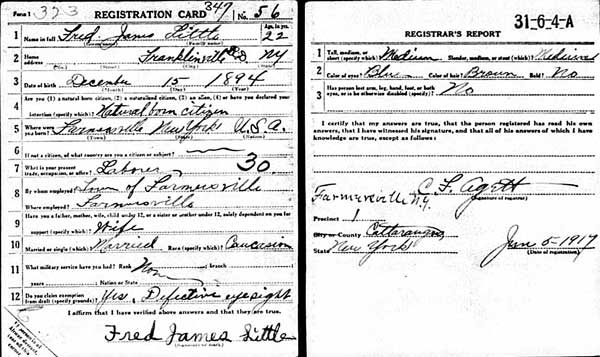 Form 1 323 REGISTRATION CARD 347 No. 56
1 Name in full Fred James Little Age, in yrs. 22
2 Home address Franklinville NY
3 Date of birth December 15 1894
4 Are you (1) a natural-born citizen, (2) a naturalized citizen, (3) an alien, (4) or have you declared your intention (specify which)? Natural born citizen
5 Where were you born? Farmersville New York U.S.A.
6 If not a citizen, of what country are you a citizen or subject?
7 What is your present trade, occupation, or office? Laborer 30
8 By whom employed? Town of Farmersville
Where employed? Farmersville
9 Have you a father, mother, wife, child under 12, or a sister or brother under 12, solely dependent on you for support (specify which)? Wife
10 Married or single (which)? Married Race (specify which)? Caucasion
11 What military service have you had? Rank None ; branch
years ; Nation or State
12 Do you claim exemption from draft (specify grounds)? Yes, Defective eyesight
I affirm that I have verified above answers and that they are true.
Fred James Little
31-6-4-A
REGISTRAR'S REPORT
1 Tall, medium, or short (specify which)? Medium Slender, medium, or stout (which)? Medium
2 Color of eyes? Blue Color of hair? Brown Bald? No
3 Has person lost arm, leg, hand, foot, or both eyes, or is he otherwise disabled (specify)? No
I certify that my answers are true, that the person registered has read his own
answers, that I have witnessed his signature, and that all of his answers of which I have
knowledge are true, except as follows:
(Signature of registrar)
Farmersville N.Y.
Precinct 1
City or County Cattaraugus
State New York
June 5-1917
(Date of registration)